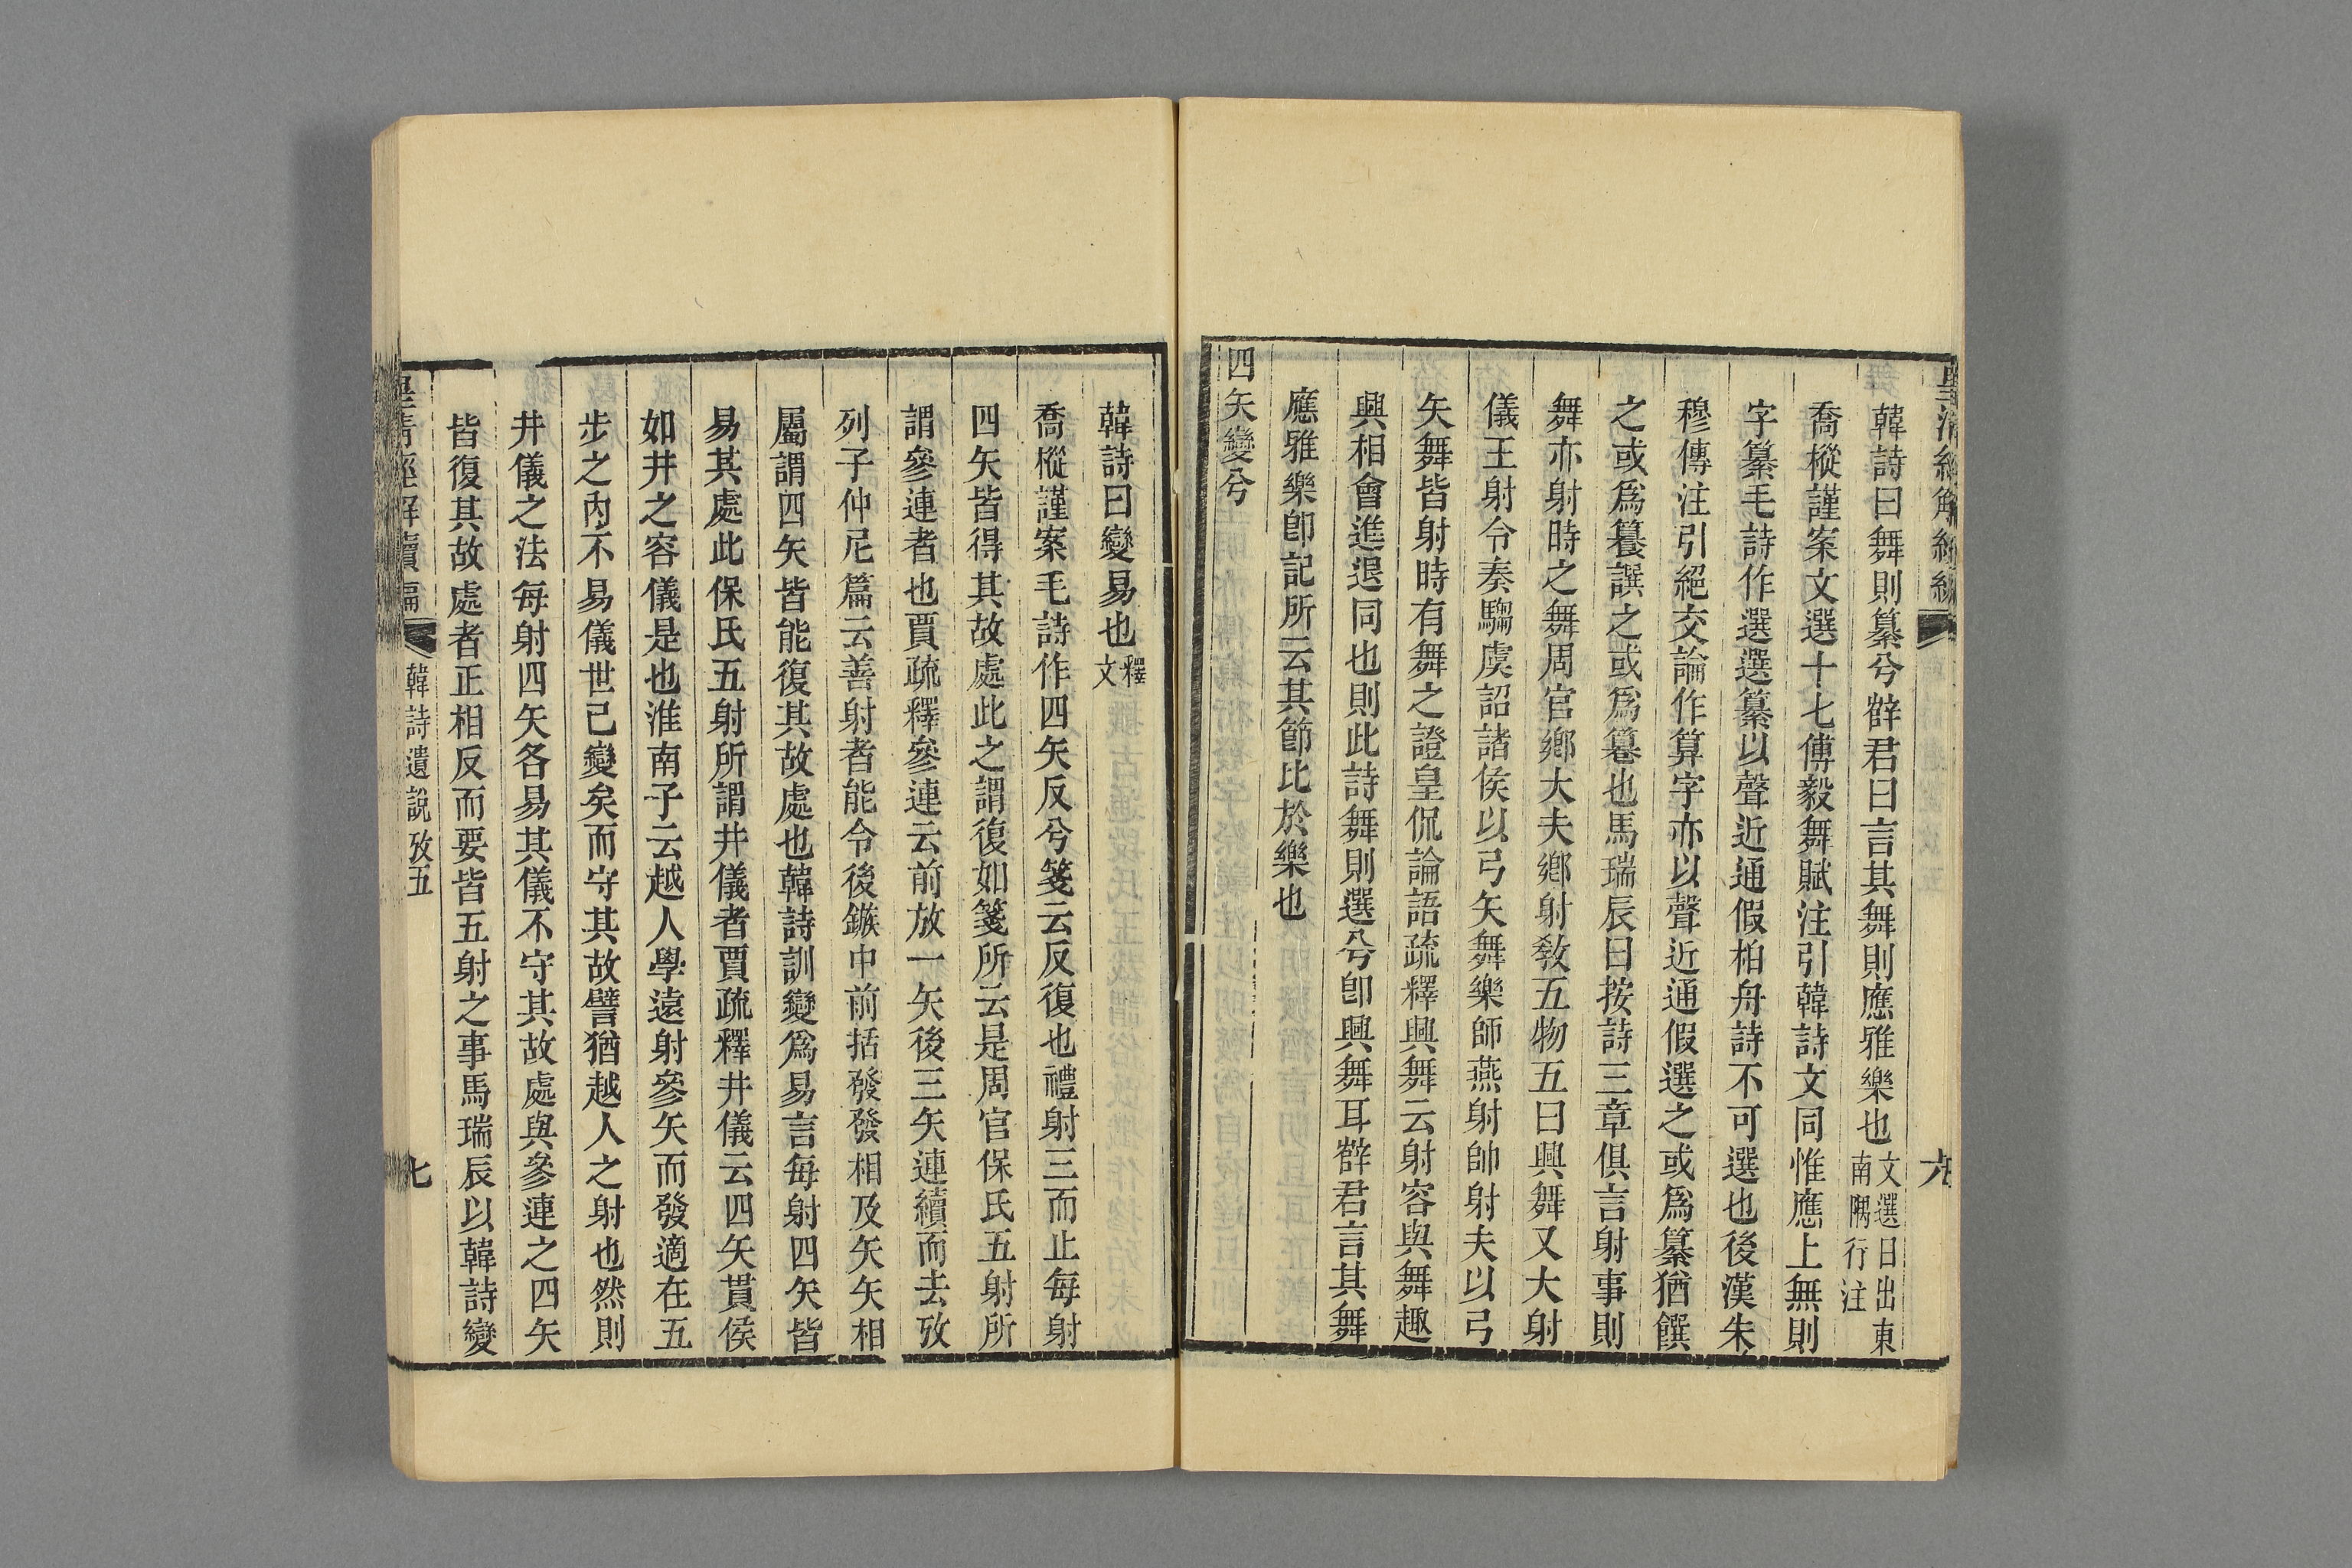 皇清經解續編
六
韓詩曰舞則纂兮薛君曰言其舞則應雅樂也文選日出東南隅行注
喬樅謹案文選十七傅毅舞賦注引韓詩文同惟應上無則
字纂毛詩作選選纂以聲近通假柏舟詩不可選也後漢朱
穆傳注引絕交論作算字亦以聲近通假選之或爲纂猶饌
之或爲籑譔之或爲篹也馬瑞辰曰按詩三章俱言射事則
舞亦射時之舞周官鄉大夫鄉射敎五物五曰興舞又大射
儀王射令奏騶虞詔諸侯以弓矢舞樂師燕射帥射夫以弓
矢舞皆射時有舞之證皇侃論語疏釋興舞云射容與舞趣
興相會進退同也則此詩舞則選兮卽興舞耳薛君言其舞
應雅樂卽記所云其節比於樂也
四矢變兮
韓詩曰變易也釋文
喬樅謹案毛詩作四矢反兮箋云反復也禮射三而止每射
四矢皆得其故處此之謂復如箋所云是周官保氏五射所
謂參連者也賈疏釋參連云前放一矢後三矢連續而去攷
列子仲尼篇云善射者能令後鏃中前括發發相及矢矢相
屬謂四矢皆能復其故處也韓詩訓變爲易言每射四矢皆
易其處此保氏五射所謂井儀者賈疏釋井儀云四矢貫侯
如井之容儀是也淮南子云越人學遠射參矢而發適在五
步之內不易儀世已變矣而守其故譬猶越人之射也然則
井儀之法每射四矢各易其儀不守其故處與參連之四矢
皆復其故處者正相反而要皆五射之事馬瑞辰以韓詩變
皇清經解續編
韓詩遺說攷五
七